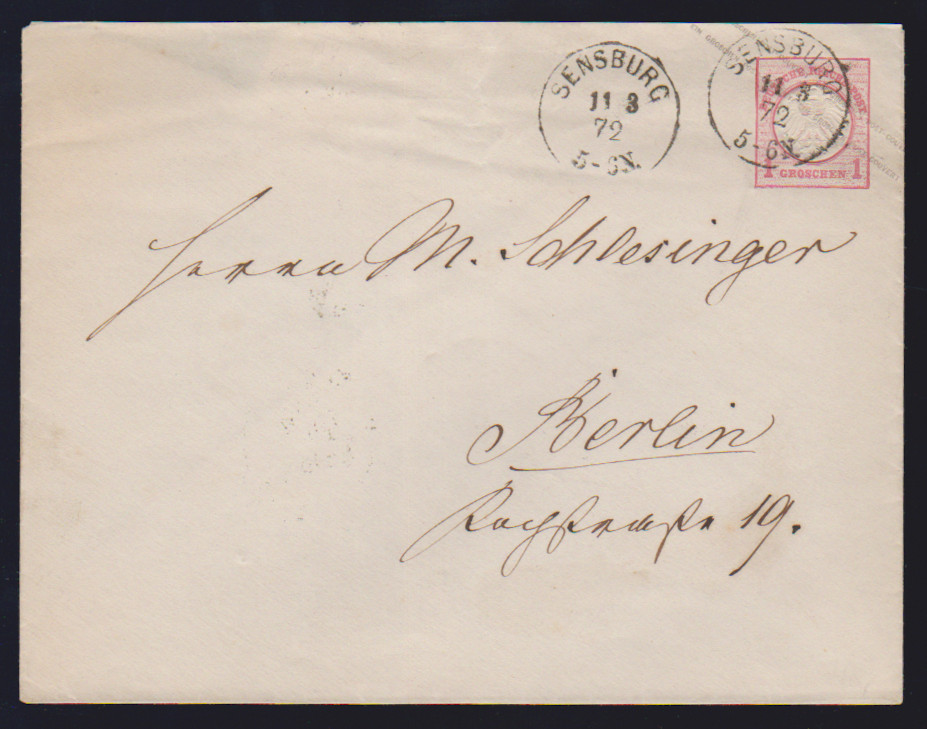 SENSBURG
11 3
72
5-6N.
SENSBURG
11 3
72
5-6N.
DEUTSCHE REICHS-POST
1 GROSCHEN 1
Herrn M. Schlesinger
Berlin
Kochstraße 19.